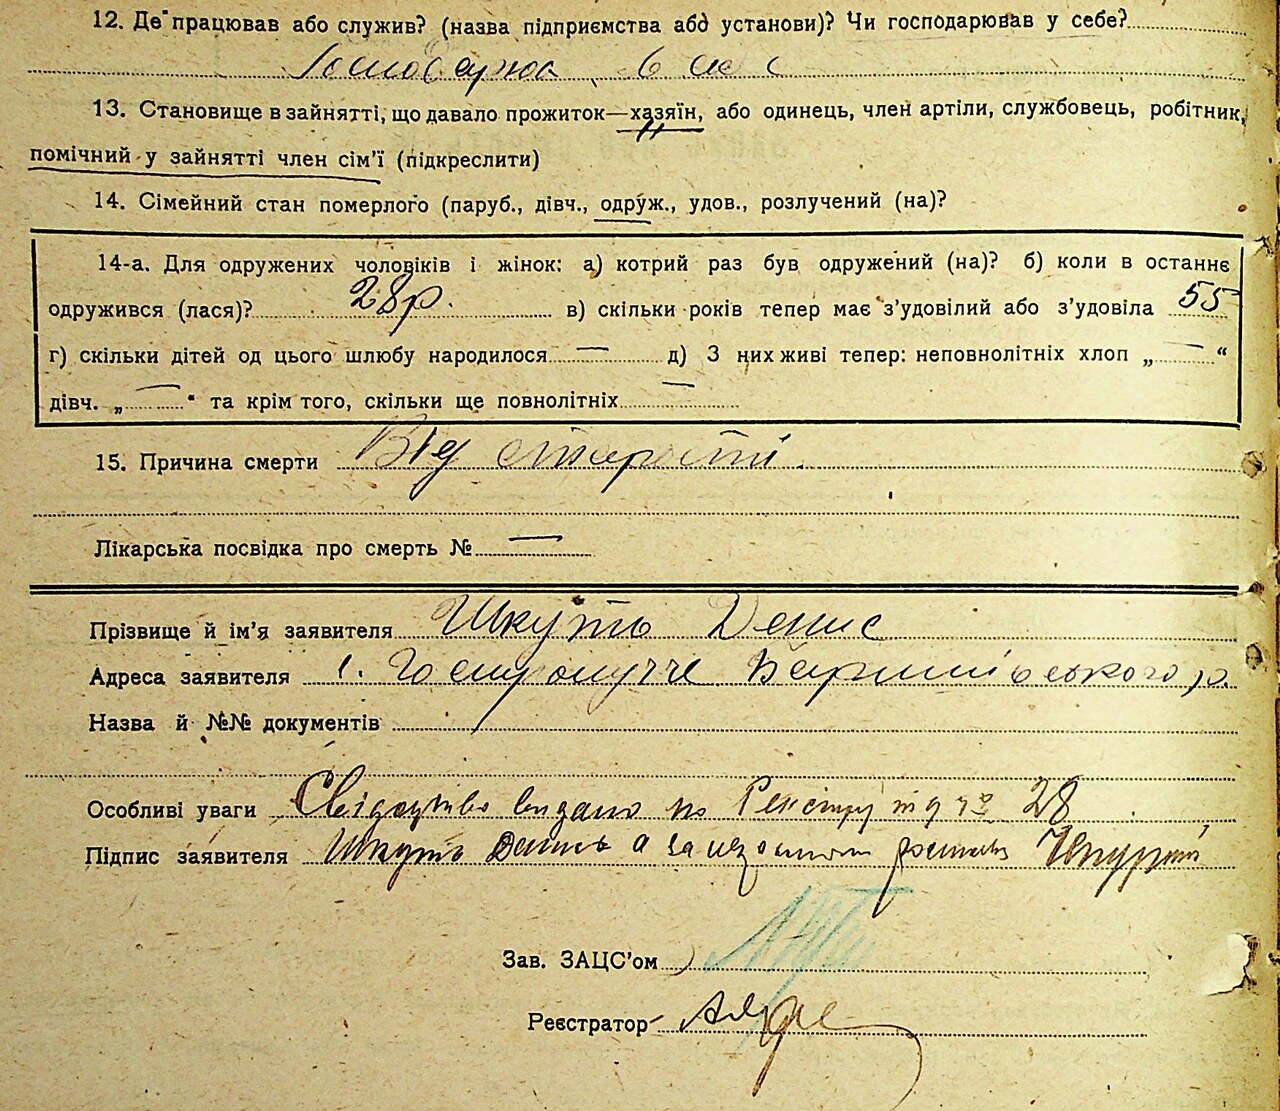 12. Де працював або служив? (назва підприємства або установи)? Чи господарював у себе?
Господарюв
13. Становище в зайнятті, що давало прожиток—хазяїн, або одинець, член артіли, службовець, робітник,
помічний у зайнятті член сім'ї (підкреслити)
14. Сімейний стан померлого (паруб., дівч., одруж., удов., розлучений (на)?
14-а. Для одружених чоловіків і жінок: а) котрий раз був одружений (на)? б) коли в останнє
одружився (лася)? 28р. в) скільки років тепер має з'удовілий або з'удовіла 55
г) скільки дітей од цього шлюбу народилося — д) З них живі тепер: неповнолітніх хлоп „ — “
дівч. „ — “ та крім того, скільки ще повнолітніх —
15. Причина смерти Від старости.
Лікарська посвідка про смерть № —
Прізвище й ім'я заявителя Шкуть Денис
Адреса заявителя с. Гостролуччє Баришівського р.
Назва й №№ документів
Особливі уваги Свідоцтво видано по Реєстру під № 28
Підпис заявителя Шкуть Денис а
Зав. ЗАЦС'ом
Реєстратор